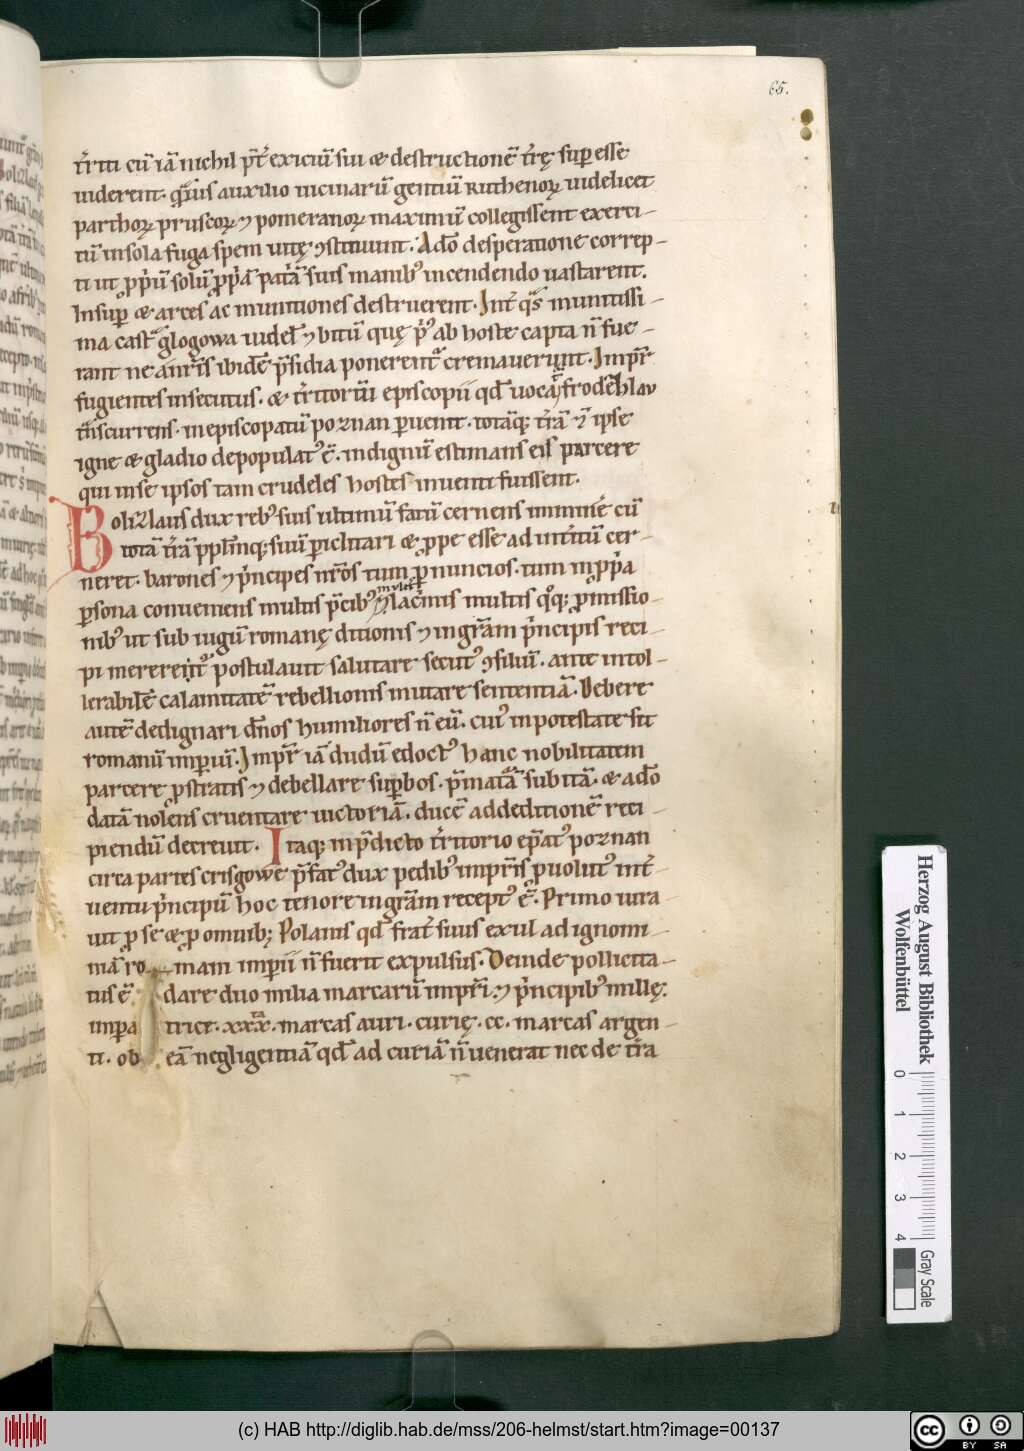 65.
t̄riti cū iā nichil p̄t̄ exiciū sui & destructionē t̄rę sup̱ esse
uiderent. q̄uis auxilio uicinarū gentiū Ruthenoꝝ uidelicet
parthoꝝ pruscoꝝ ⁊ pomeranoꝝ maximū collegissent exerci-
tū in sola fuga spem uitę ꝯstituunt. Adō desperatione correp-
ti ut ꝓp̄ū solū ꝓp̄ā pat̄ā suis manibꝰ incendendo uastarent.
Insup̱ & arces ac munitiones destruerent. Int̄ q̄s munitissi-
ma cast̄ glogowa uidel̄ ⁊ bitū quę p̄ꝰ ab hoste capta n̄ fue-
rant ne a n̄r̄is ibidē p̄sidia ponerent̄ cremauerunt. Imp̄r
fugientes insecutus. & t̄ritoriū episcopii qd̄ uocāt frodezlau
t̄nscurrens. in episcopatū poznan p̱uenit. totāq; t̄rā ī ipse
igne & gladio depopulatꝰ ē. indignū estimans eis parcere
qui in se ipsos tam crudeles hostes inuenti fuissent.
Bolizlaus dux rebꝰ suis ultimū fatū cernens imminē cū
totā t̄rā pplm̄q; suū p̱iclitari & ꝓpe esse ad intitū cer-
neret. barones ⁊ p̄ncipes nr̄os tum ꝑ nuncios. tum in ꝓp̄a
p̱sona conueniens multis p̄cibꝰ multis ⁊ lac̄mis multis q̊q; ꝓmissio-
nibꝰ ut sub iugū romanę ditionis ⁊ in gr̄am p̄ncipis reci-
pi mererent̄ postulauit salutare secutꝰ ꝯsiliū. ante intol-
lerabilē calamitatē rebellionis mutare sententiā. Debere
autē dedignari dn̄os humiliores n̄ eū. cuiꝰ in potestate sit
romanū imp̱iū. Imp̄r iā dudū edoctꝰ hanc nobilitatem
parcere ꝓstratis ⁊ debellare sup̱bos. p̄matā subitā. & adō
datā nolens cruentare uictoriā. ducē ad deditionē reci-
piendū decreuit. Itaq; in p̄dicto t̄rritorio ep̄atꝰ poznan
circa partes crisgowe p̄fatꝰ dux pedibꝰ imp̄ris ꝓuolutꝰ int̄
uentu p̄ncipū hoc tenore in gr̄am receptꝰ ē. Primo iura
uit ꝓ se & ꝓ omnib; Polanis qd̄ frat̄ suus exul ad ignomi-
niā romani imp̱ii n̄ fuerit expulsus. Deinde pollicita-
tus ē dare duo milia marcarū imp̄ri. ⁊ p̄ncipibꝰ millę.
imp̱atrici. xxx. marcas auri. curię. cc. marcas argen-
ti. ob eā negligentiā qd̄ ad curiā n̄ uenerat nec de t̄ra
Herzog August Bibliothek
Wolfenbüttel
0 1 2 3 4
Gray Scale
(c) HAB http://diglib.hab.de/mss/206-helmst/start.htm?image=00137
cc BY SA